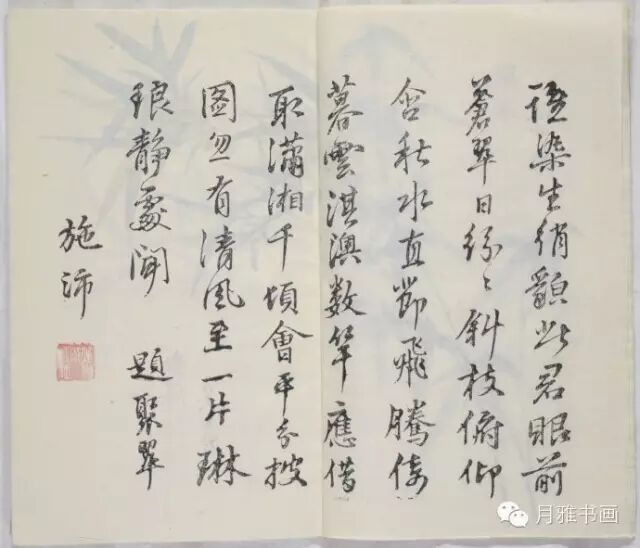 誰染生綃貌此君眼前
蒼翠日紛〻斜枝俯仰
含秋水直節飛騰倚
暮雲淇澳數竿應借
取瀟湘千頃會平分披
圖忽有清風至一片琳
琅靜處聞 題聚翠
施沛
月雅书画